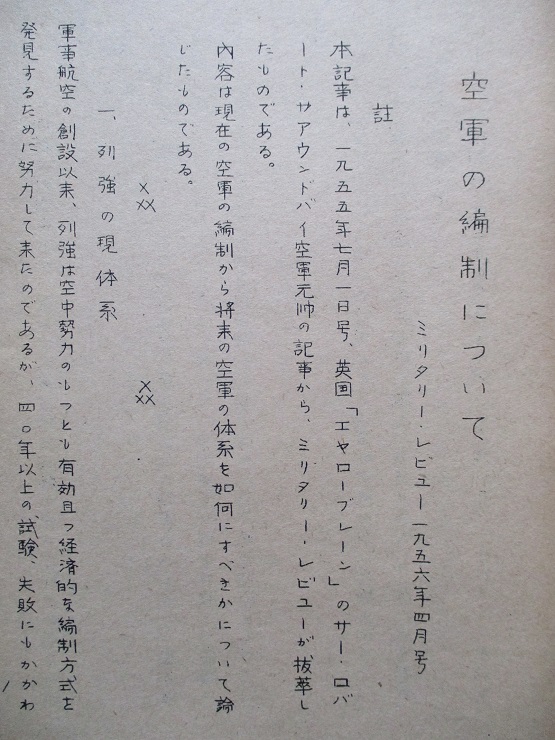 空軍の編制について
ミリタリー・レビュー一九五六年四月号
註
本記事は、一九五五年七月一日号、英国「エヤロープレーン」のサー・ロバ
ート・サアウンドバイ空軍元帥の記事から、ミリタリー・レビューが、抜萃し
たものである。
内容は現在の空軍の編制から将来の空軍の体系を如何にすべきかについて論
じたものである。
× ××  × ××
一、列強の現体系
軍事航空の創設以来、列強は空中勢力のもつとも有効且つ経済的な編制方式を
発見するために努力して来たのであるが、四〇年以上の、試験、失敗にもかかわ